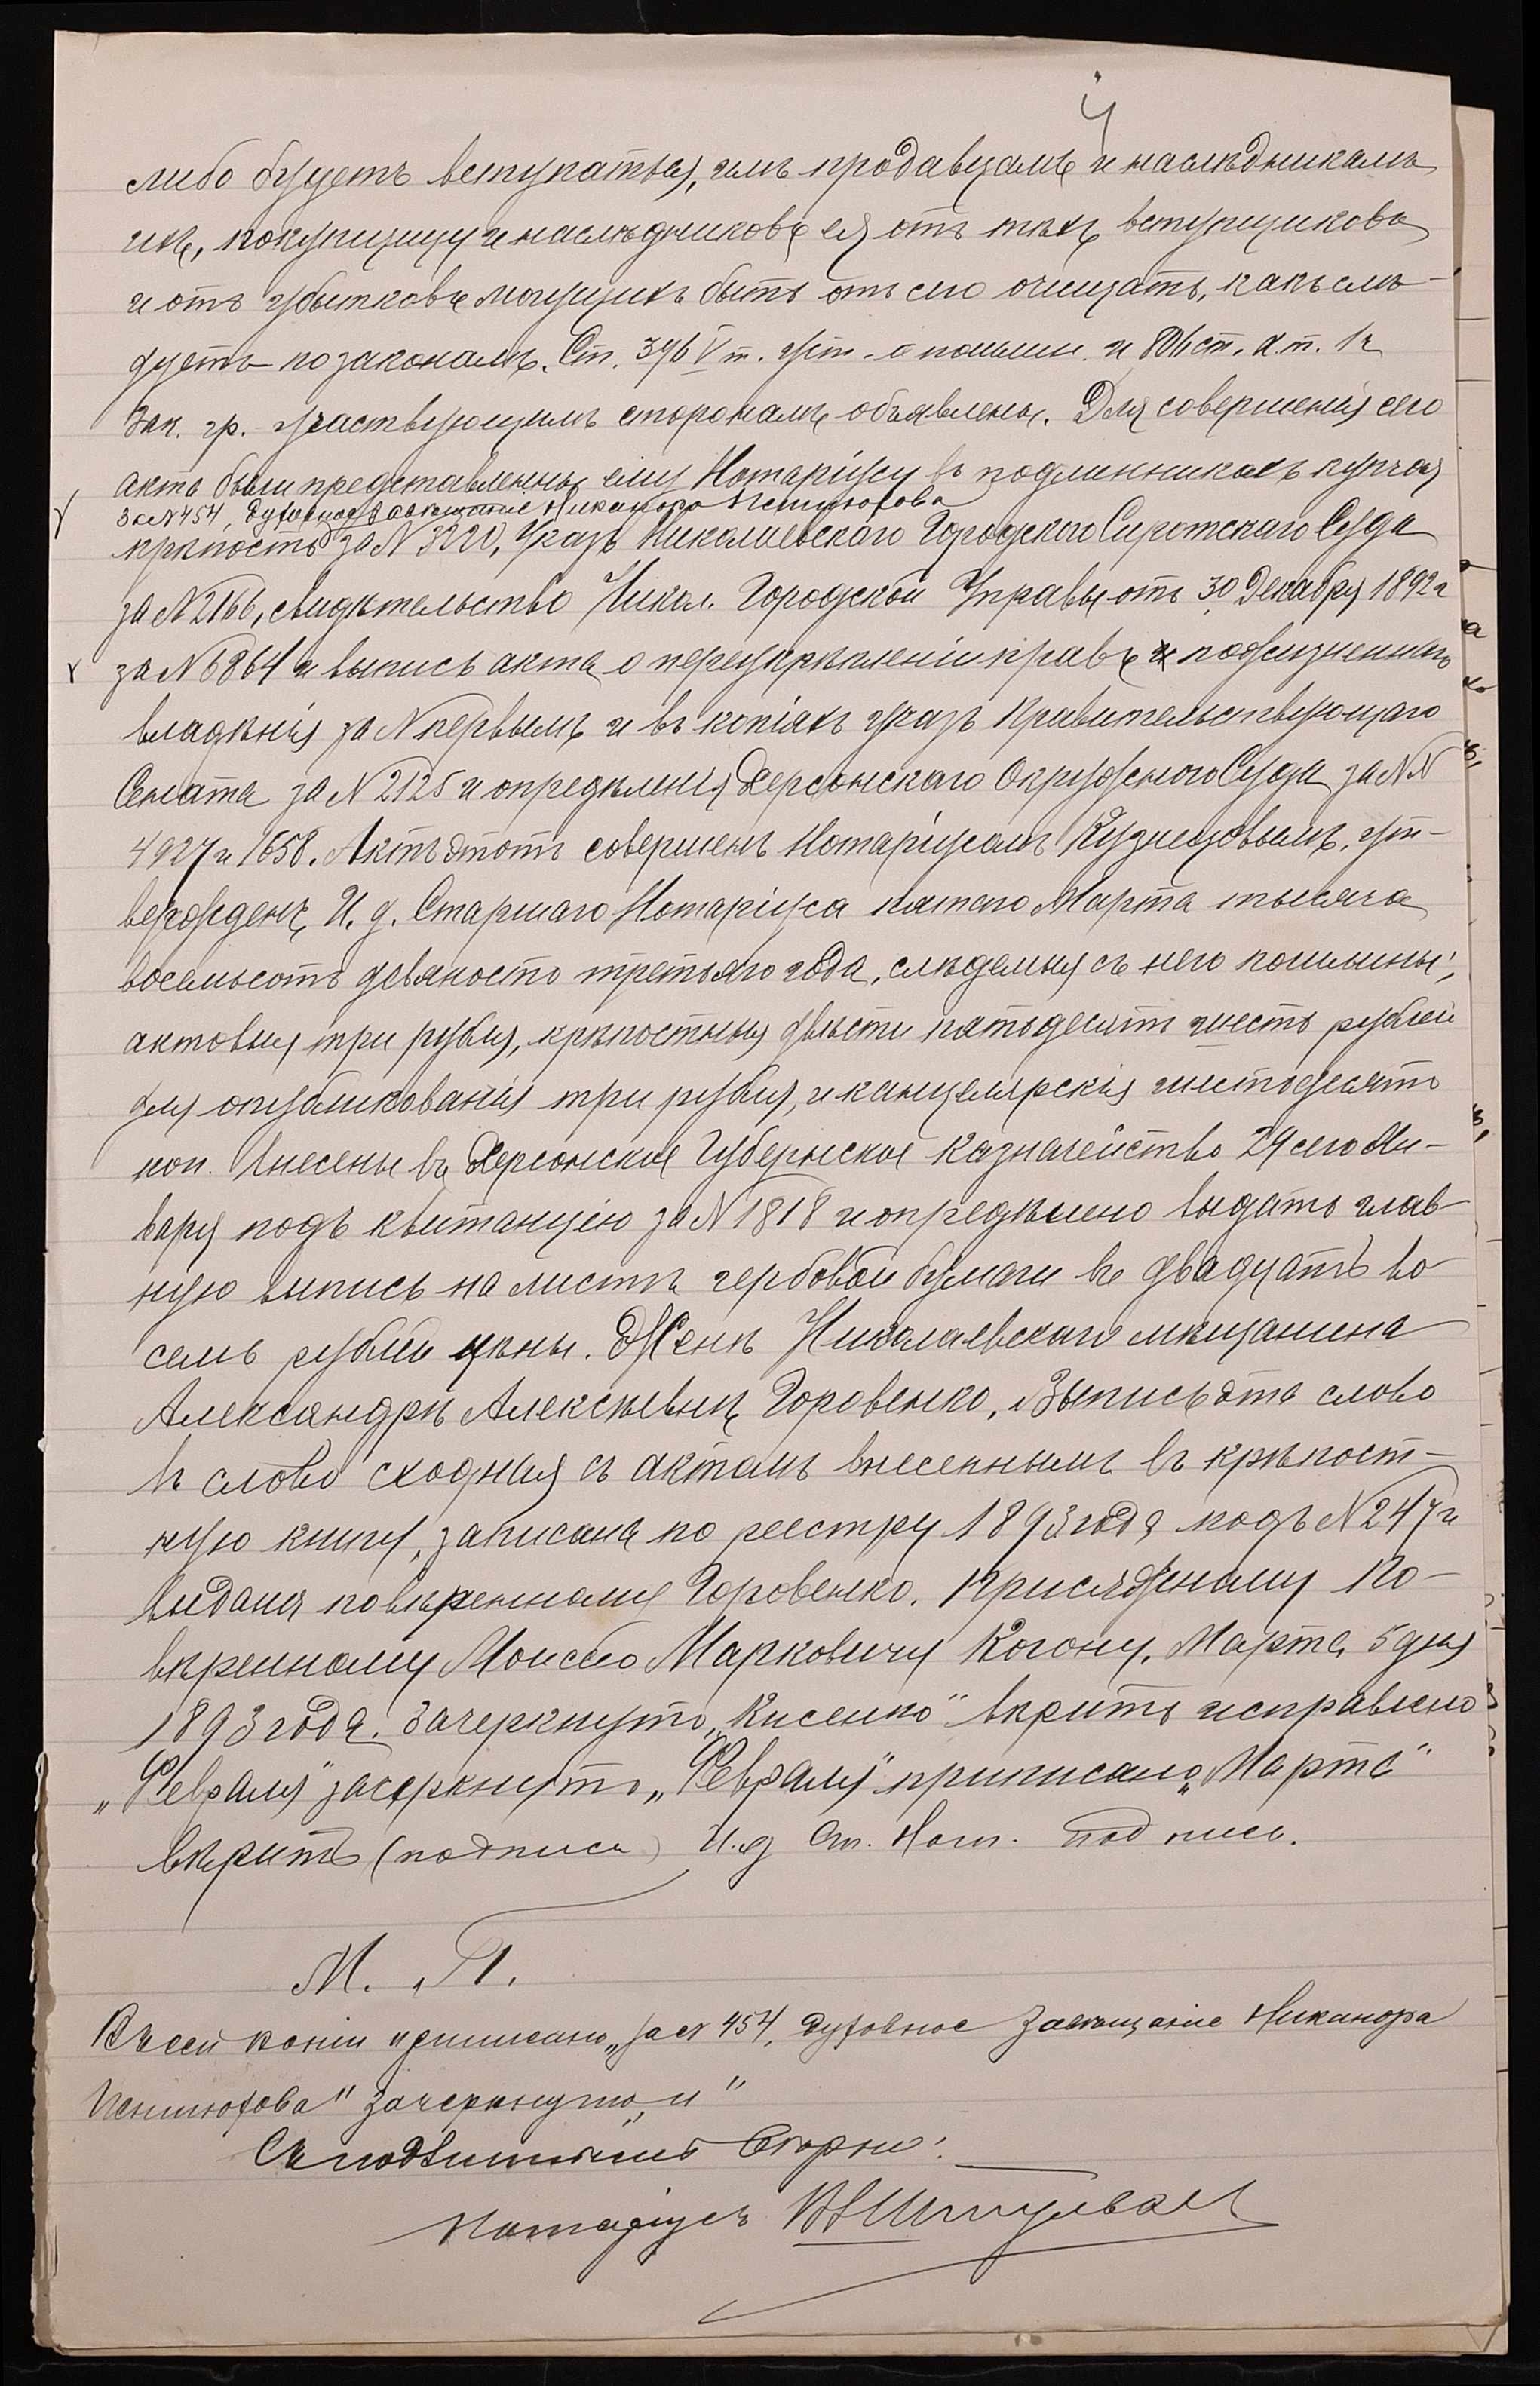 4
либо будетъ вступаться, имъ продавцамъ и наслѣдникамъ
ихъ, покупщицу и наслѣдниковъ ея отъ тѣхъ вступщиковъ
и отъ убытковъ могущихъ быть отъ сего очищать, какъ слѣ-
дуетъ по законамъ. Ст. 396 V т. Уст. о пошлин. и 806 ст. X т. 1 ч
Зак. гр. участвующимъ сторонамъ объявлены. Для совершенія сего
акта были представлены ему Нотаріусу въ подлинникахъ купчая
за № 454, духовное завѣщаніе Никанора
крѣпость за № 3220, Указъ Николаевскаго Городского Сиротскаго Суда
за № 2166, свидѣтельство Никол. Городской Управы отъ 30 Декабря 1892 г
за № 6864 и выпись акта о переукрѣпленіи правъ и пожизненнаго
владѣнія за № первымъ и въ копіяхъ указъ Правительствующаго
Сената за № 2125 и опредѣленія Херсонскаго Окружного Суда за №№
4927 и 1658. Актъ этотъ совершенъ Нотаріусомъ Кузнецовымъ, ут-
вержденъ И. д. Старшаго Нотаріуса пятаго Марта тысяча
восемьсотъ девяносто третьяго года, слѣдемыя съ него пошлины:
актовыя три рубля, крѣпостныя двѣсти пятьдесятъ шесть рублей
для опубликованія три рубля, и канцелярскія шестьдесятъ
коп. внесены въ Херсонское Губернское Казначейство 29 сего Ян-
варя подъ квитанцію за № 1818 и опредѣлено выдать глав-
ную выпись на листѣ гербовой бумаги въ двадцать во-
семь рублей цѣны. Женѣ Николаевскаго мѣщанина
Александрѣ Алексѣевнѣ Горовенко. Выпись эта слово
въ слово сходная съ актомъ внесеннымъ въ крѣпост-
ную книгу, записана по реестру 1893 года подъ № 247 и
выдана повѣренному Горовенко, Присяжному По-
вѣренному Моисею Марковичу Когону, Марта 5 дня
1893 года. Зачеркнуто „Кисенко" вѣрить исправлено
„Февраля" зачеркнуто „Февраля" приписано „Марта"
вѣрить (подпись) И. д Ст. Нот. подпись.
М. П.
Въ сей копіи приписано „за № 454, духовное завѣщаніе Никанора
зачеркнуто „и"
Съ подлиннымъ вѣрно:
Нотаріусъ